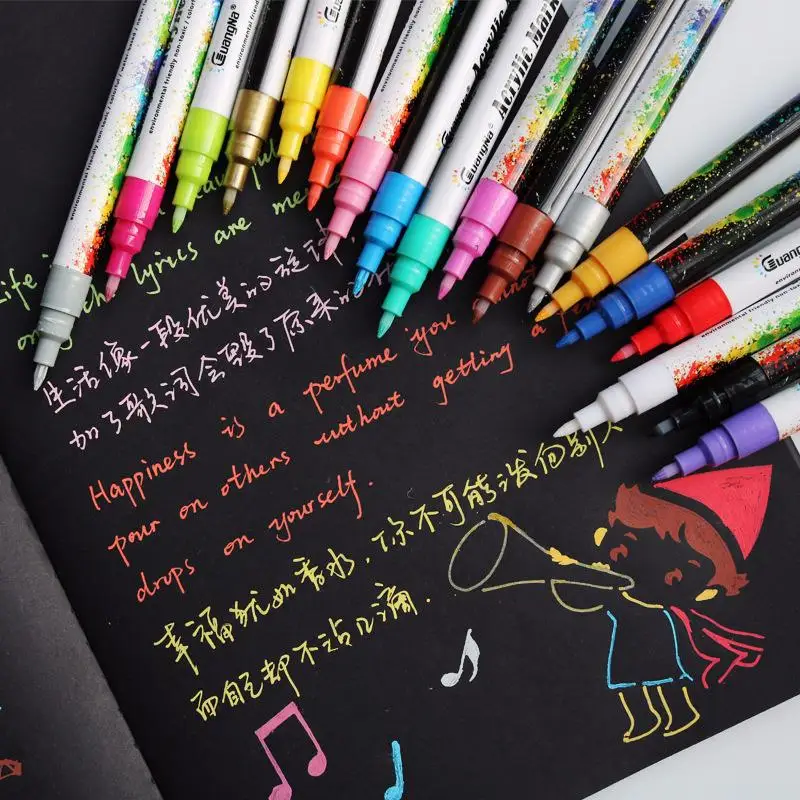 environmental friendly non-toxic / colorful /
environmental friendly non-toxic
GuangNa®
GuangNa
Acrylic Mar
GuangNa®
environmental friendly
Life i
the lyrics are me
生活像一段优美的旋律,
加了歌词会毁了原来的
Happiness is a perfume you cannot
pour on others without getting a
drops on yourself.
幸福犹如香水,你不可能泼向别人
而自己却不沾几滴.